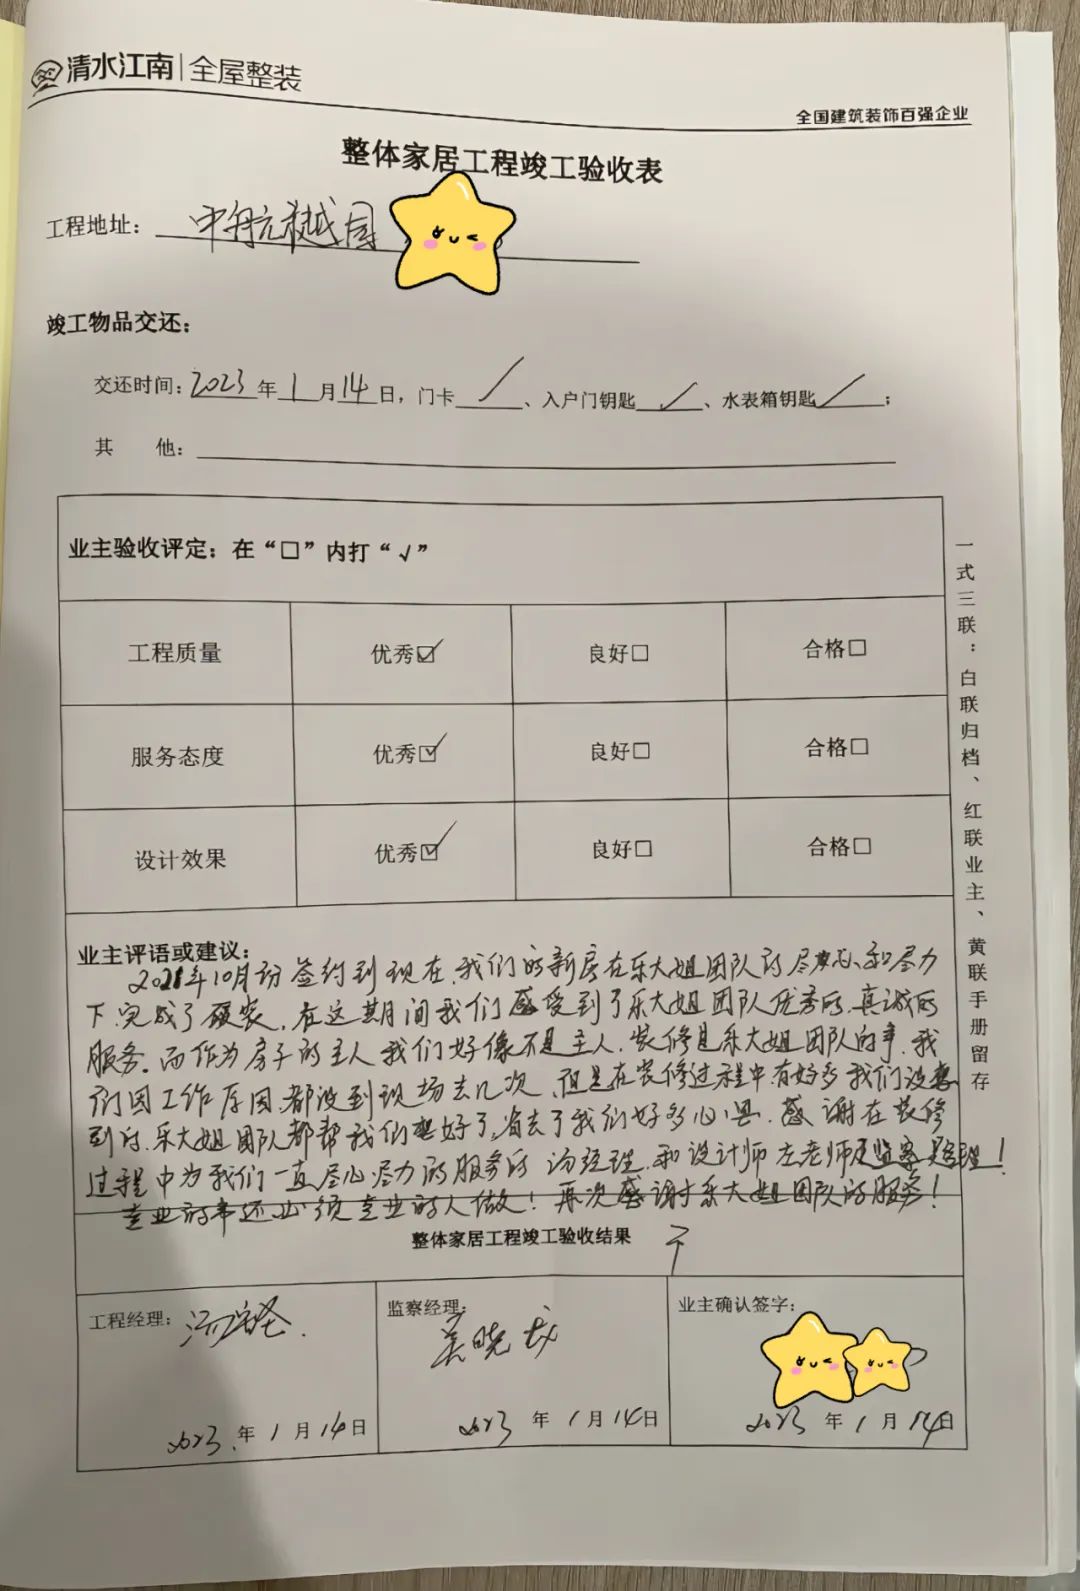 清水江南|全屋整装
全国建筑装饰百强企业
整体家居工程竣工验收表
工程地址：中航樾园
竣工物品交还：
交还时间：2023年1月14日，门卡/、入户门钥匙/、水表箱钥匙/；
其 他：
业主验收评定：在“□”内打“√”
工程质量 优秀☑ 良好□ 合格□
服务态度 优秀☑ 良好□ 合格□
设计效果 优秀☑ 良好□ 合格□
业主评语或建议：
2021年10月份签约到现在，我们的新房在乐大姐团队的尽心和尽力
下，完成了硬装，在这期间我们感受到了乐大姐团队优秀的，真诚的
服务。而作为房子的主人我们好像不是主人，装修是乐大姐团队的事，我
们因工作原因，都没到现场去几次，但是在装修过程中，有好多我们没想
到的，乐大姐团队都帮我们想好了，省去了我们好多心思，感谢在装修
过程中为我们一直尽心尽力的服务的汤经理，和设计师左老师及监察吴经理！
专业的事还必须专业的人做！再次感谢乐大姐团队的服务！
整体家居工程竣工验收结果
工程经理：汤
监察经理：吴晓
业主确认签字：
2023年1月14日
2023年1月14日
2023年1月14日
一式三联：白联归档、红联业主、黄联手册留存